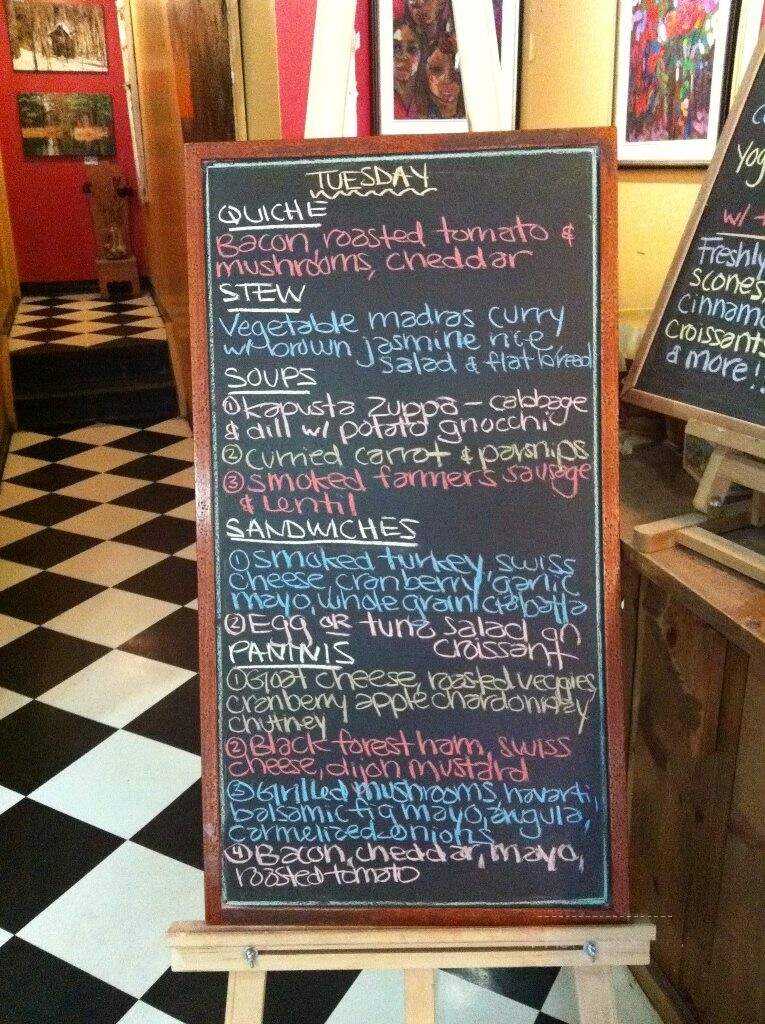 TUESDAY
QUICHE
Bacon, roasted tomato &
mushrooms, cheddar
STEW
Vegetable madras curry
w/ brown jasmine rice
salad & flat bread
SOUPS
① Kapusta Zuppa - cabbage
& dill w/ potato gnocchi
② curried carrot & parsnips
③ smoked farmers sausage
& lentil
SANDWICHES
① smoked turkey, swiss
cheese, cranberry/garlic
mayo, whole grain ciabatta
② Egg OR tuna salad on
croissant
PANINIS
① Goat cheese, roasted veggies,
cranberry apple chardonnay
chutney
② Black forest ham, swiss
cheese, dijon mustard
③ Grilled mushrooms, havarti,
balsamic fig mayo, arugula,
carmelized onions
④ Bacon, cheddar, mayo,
roasted tomato
w/
Freshly
scones,
croissants
& more!!